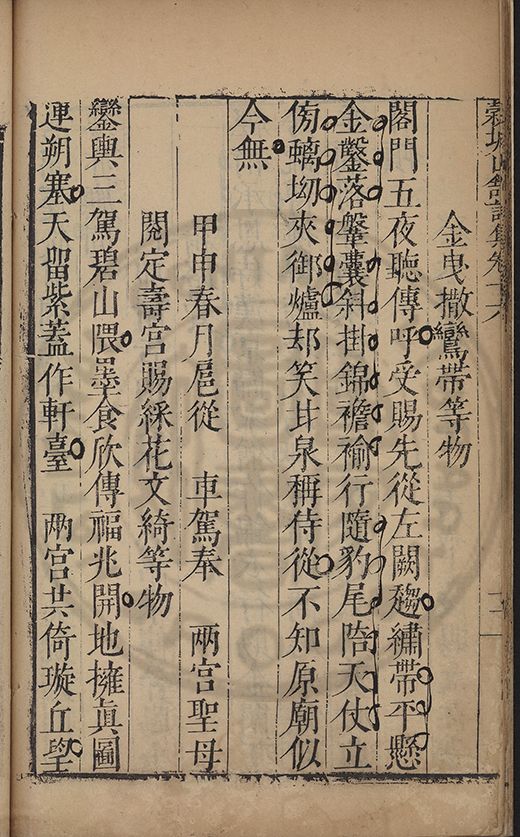 穀城山館詩集卷十六
金曳撒鸞帶等物
閣門五夜聽傳呼受賜先從左闕趨繡帶平懸
金鑿落鞶囊斜掛錦襜褕行隨豹尾陪天仗立
傍螭坳夾御爐却笑甘泉稱侍從不知原廟似
今無
甲申春月扈從 車駕奉 兩宮聖母
閱定壽宮賜綵花文綺等物
鑾輿三駕碧山隈墨食欣傳福兆開地擁眞圖
連朔塞天留紫蓋作軒臺 兩宮共倚璇丘望